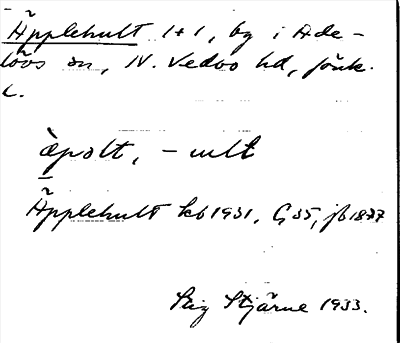 Äpplehult 1+1, by i Ade-
lövs sn, N. Vedbo hd, Jönk.
L.
äpolt, -ult
Äpplehult kb 1931, G 35, jb 1877
Stig Stjärne 1933.